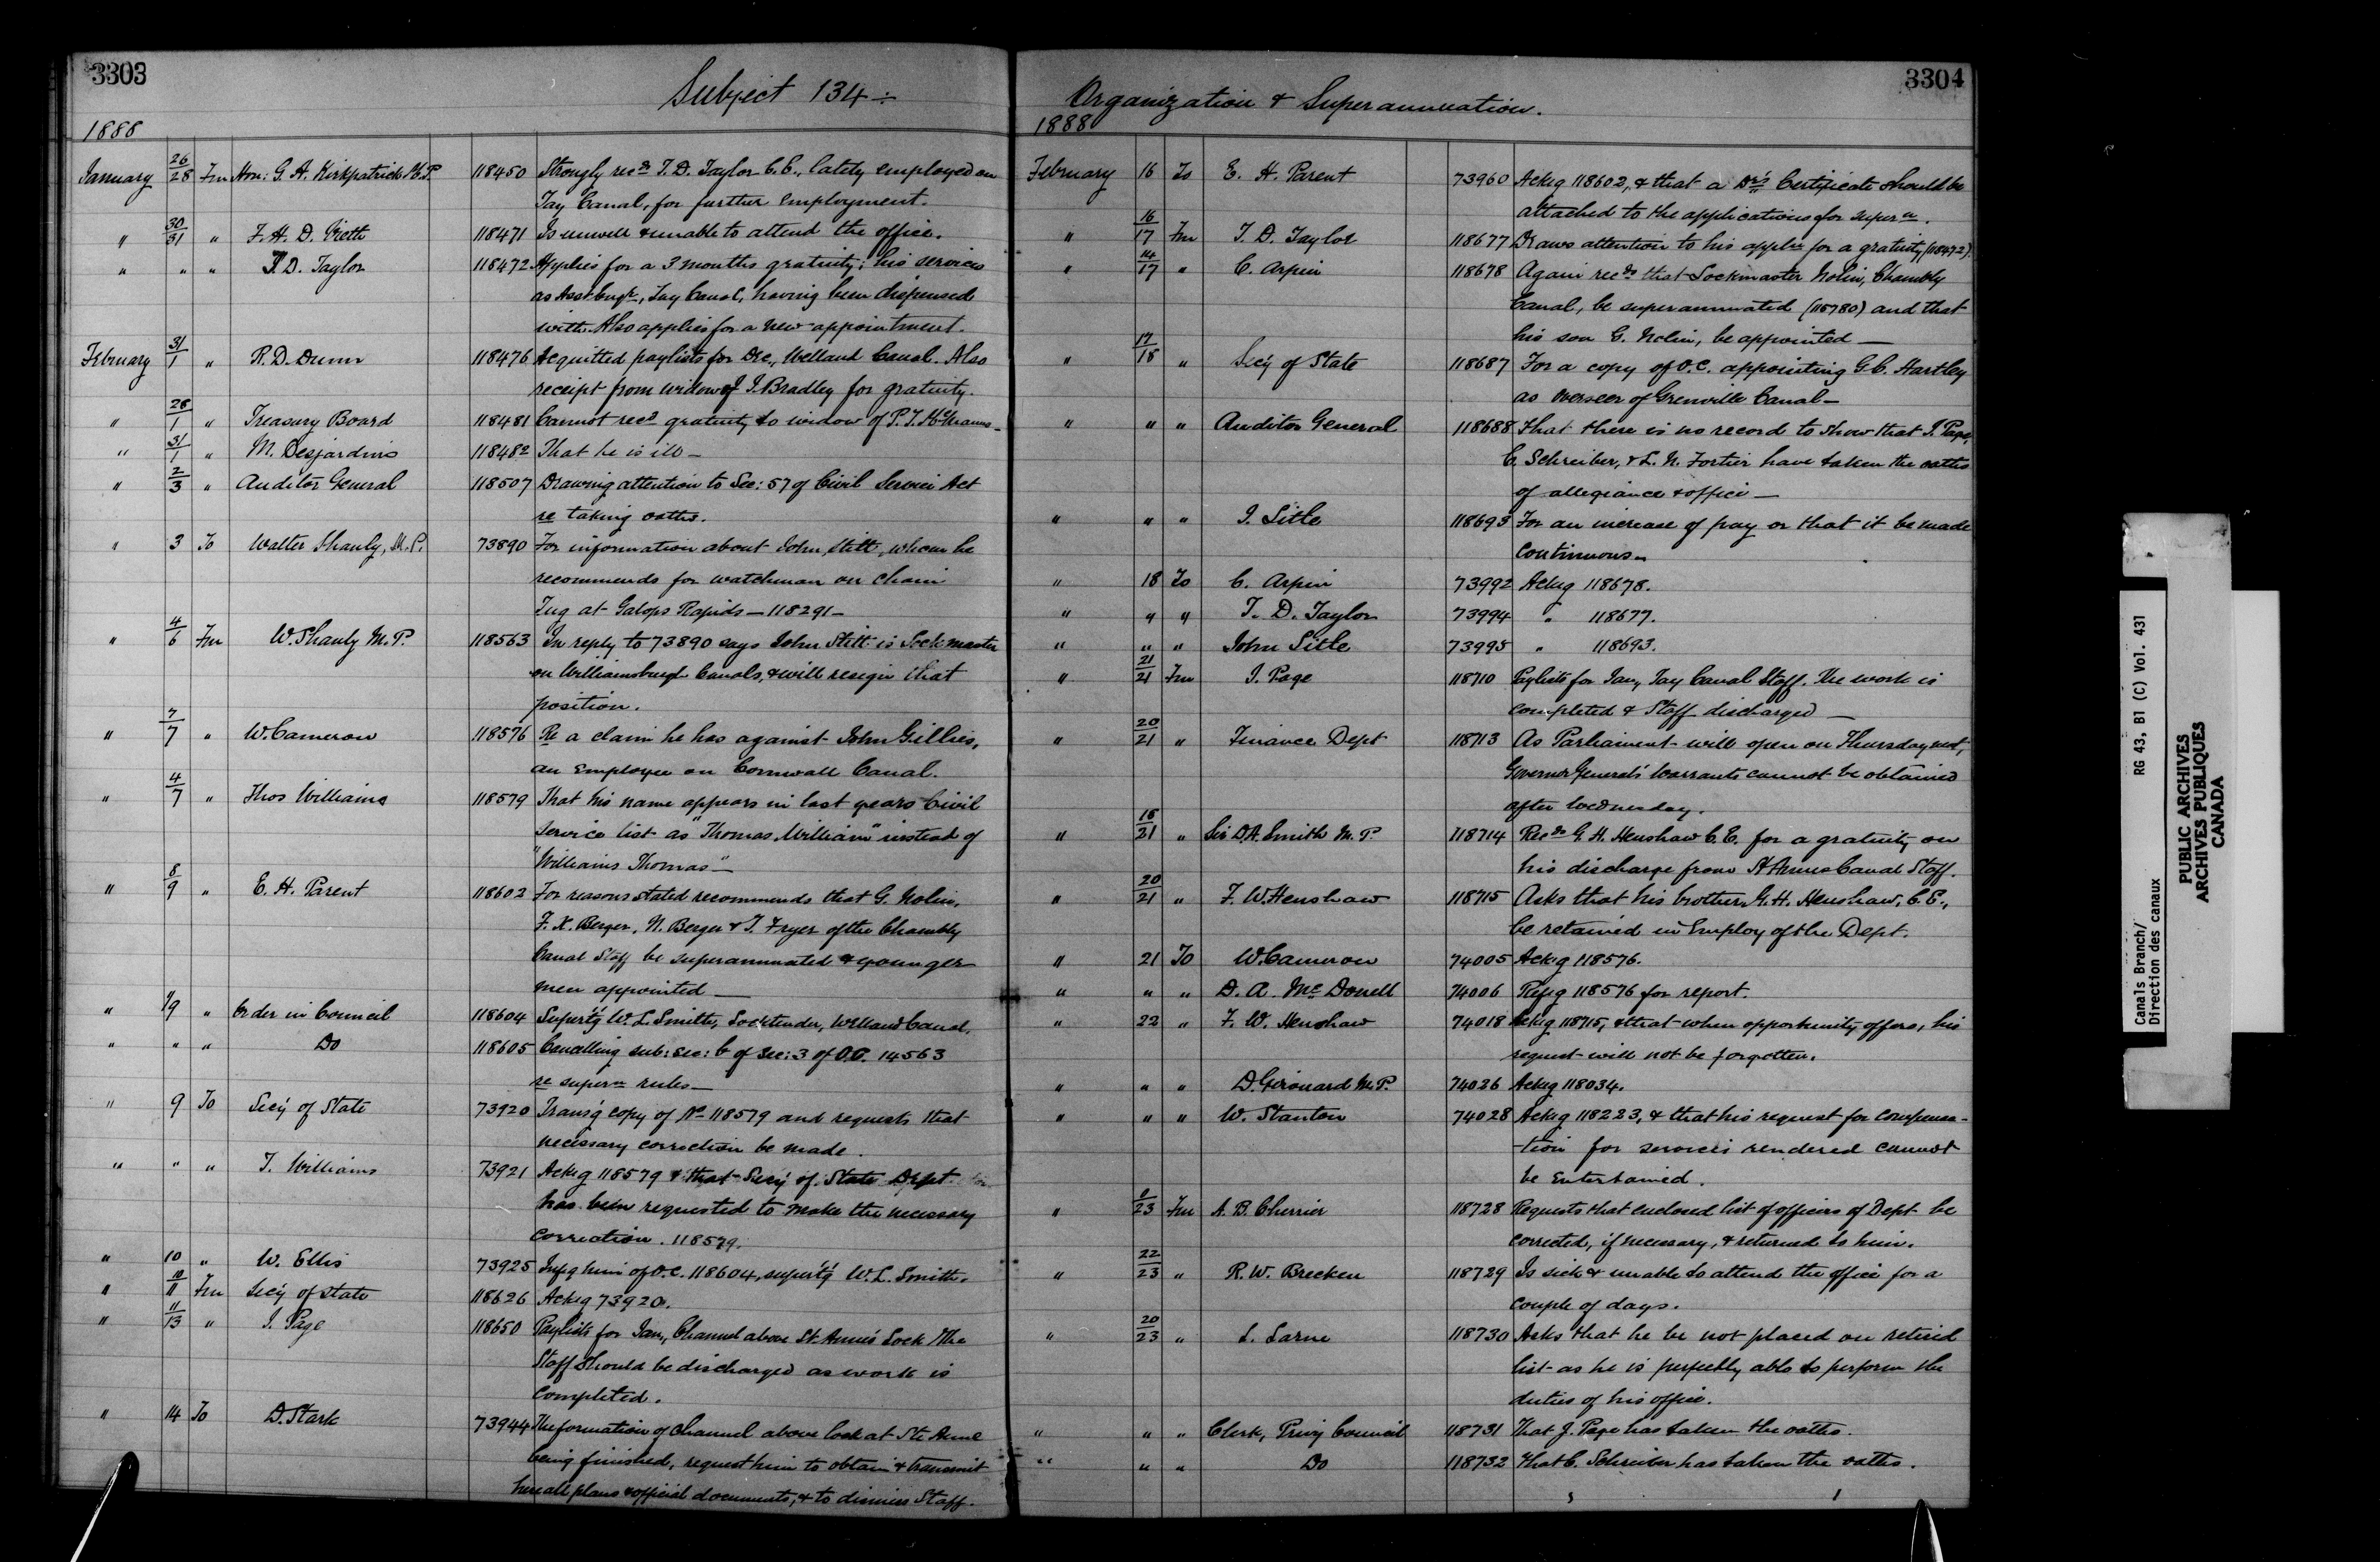 3303
Subject 134 :-
1888
January 26/28 Fm Hon: G. A. Kirkpatrick M.P. 118450 Strongly recds T. D. Taylor C.E., lately employed on
Tay Canal, for further employment.
" 30/31 " F. H. D. Vieth 118471 Is unwell & unable to attend the office.
" " " T. D. Taylor 118472 Applies for a 3 months gratuity; his services
as Asst Engr, Tay Canal, having been dispensed
with. Also applies for a new appointment.
February 31/1 " R. D. Dunn 118476 Acquitted paylists for Dec, Welland Canal. Also
receipt from widow of J. Bradley for gratuity.
" 28/1 " Treasury Board 118481 Cannot recd gratuity to widow of P. J.
" 31/1 " M. Desjardins 118482 That he is ill —
" 2/3 " Auditor General 118507 Drawing attention to Sec: 57 of Civil Service Act
re taking oaths.
" 3 To Walter Shanly, M.P. 73890 For information about John Stitt, whom he
recommends for watchman on chain
Tug at Galops Rapids — 118291 —
" 4/6 Fm W. Shanly M.P. 118563 In reply to 73890 says John Stitt is Lockmaster
on Williamsburgh Canals, & will resign that
position.
" 7/7 " W. Cameron 118576 Re a claim he has against John Gillies,
an Employee on Cornwall Canal.
" 4/7 " Thos Williams 118579 That his name appears in last years Civil
Service list as "Thomas William" instead of
"Williams Thomas" —
" 8/9 " E. H. Parent 118602 For reasons stated recommends that G. Nolin,
F. X. Berger, N. Berger & T. Fryer of the Chambly
Canal Staff be superannuated & younger
men appointed —
" 1/9 " Order in Council 118604 Supertg W. L. Smith, Locktender, Welland Canal.
" " " Do 118605 Cancelling sub: sec: b of sec: 3 of O.C. 14563
re supern rules —
" 9 To Secy of State 73920 Transg copy of No 118579 and requests that
necessary correction be made.
" " " T. Williams 73921 Ackg 118579 & that Secy of State Dept
has been requested to make the necessary
correction. 118579.
" 10 " W. Ellis 73925 Infg him of O.C. 118604, supertg W. L. Smith.
" 10/11 Fm Secy of State 118626 Ackg 73920.
" 11/13 " J. Page 118650 Paylists for Jan, Channel above St. Anne's Lock. The
Staff should be discharged as work is
completed.
" 14 To D. Stark 73944 The formation of channel above lock at Ste Anne
being finished, request him to obtain & transmit
here all plans & official documents, & to dismiss Staff.
3304
Organization & Superannuation.
1888
February 16 To E. H. Parent 73960 Ackg 118602, & that a Dr's Certificate should be
attached to the applications for supern.
" 16/17 Fm T. D. Taylor 118677 Draws attention to his appln for a gratuity (118472).
" 14/17 " C. Arpin 118678 Again recds that Lockmaster Nolin, Chambly
Canal, be superannuated (115780) and that
his son G. Nolin, be appointed —
" 17/18 " Secy of State 118687 For a copy of O.C. appointing G. C. Hartley
as Overseer of Grenville Canal —
" " " Auditor General 118688 That there is no record to show that J. Page,
C. Schreiber, & L. N. Fortier have taken the oaths
of allegiance & office —
" " " J. Little 118693 For an increase of pay or that it be made
continuous —
" 18 To C. Arpin 73992 Ackg 118678.
" " " T. D. Taylor 73994 " 118677.
" " " John Little 73995 " 118693.
" 21/21 Fm J. Page 118710 Paylists for Jan, Tay Canal Staff. The work is
completed & Staff discharged —
" 20/21 " Finance Dept 118713 As Parliament will open on Thursday next,
Governor General's Warrants cannot be obtained
after Wednesday.
" 18/21 " Sir D. A. Smith M.P. 118714 Recds G. H. Henshaw C.E. for a gratuity on
his discharge from St Annes Canal Staff.
" 20/21 " F. W. Henshaw 118715 Asks that his brother, G. H. Henshaw, C.E.,
be retained in Employ of the Dept.
" 21 To W. Cameron 74005 Ackg 118576.
" " " D. A. McDonell 74006 Refg 118576 for report.
" 22 " F. W. Henshaw 74018 Ackg 118715, & that when opportunity offers, his
request will not be forgotten.
" " " D. Girouard M.P. 74026 Ackg 118034.
" " " W. Stanton 74028 Ackg 118223, & that his request for compensa-
-tion for services rendered cannot
be Entertained.
" 8/23 Fm A. B. Cherrier 118728 Requests that enclosed list of officers of Dept be
corrected, if necessary, & returned to him.
" 22/23 " R. W. Brecken 118729 Is sick & unable to attend the office for a
couple of days.
" 20/23 " L. Larue 118730 Asks that he be not placed on retired
list as he is perfectly able to perform the
duties of his office.
" " " Clerk, Privy Council 118731 That J. Page has taken the oaths.
" " " Do 118732 That C. Schreiber has taken the oaths.
Canals Branch/ RG 43, B1 (C) Vol. 431
Direction des canaux
PUBLIC ARCHIVES
ARCHIVES PUBLIQUES
CANADA